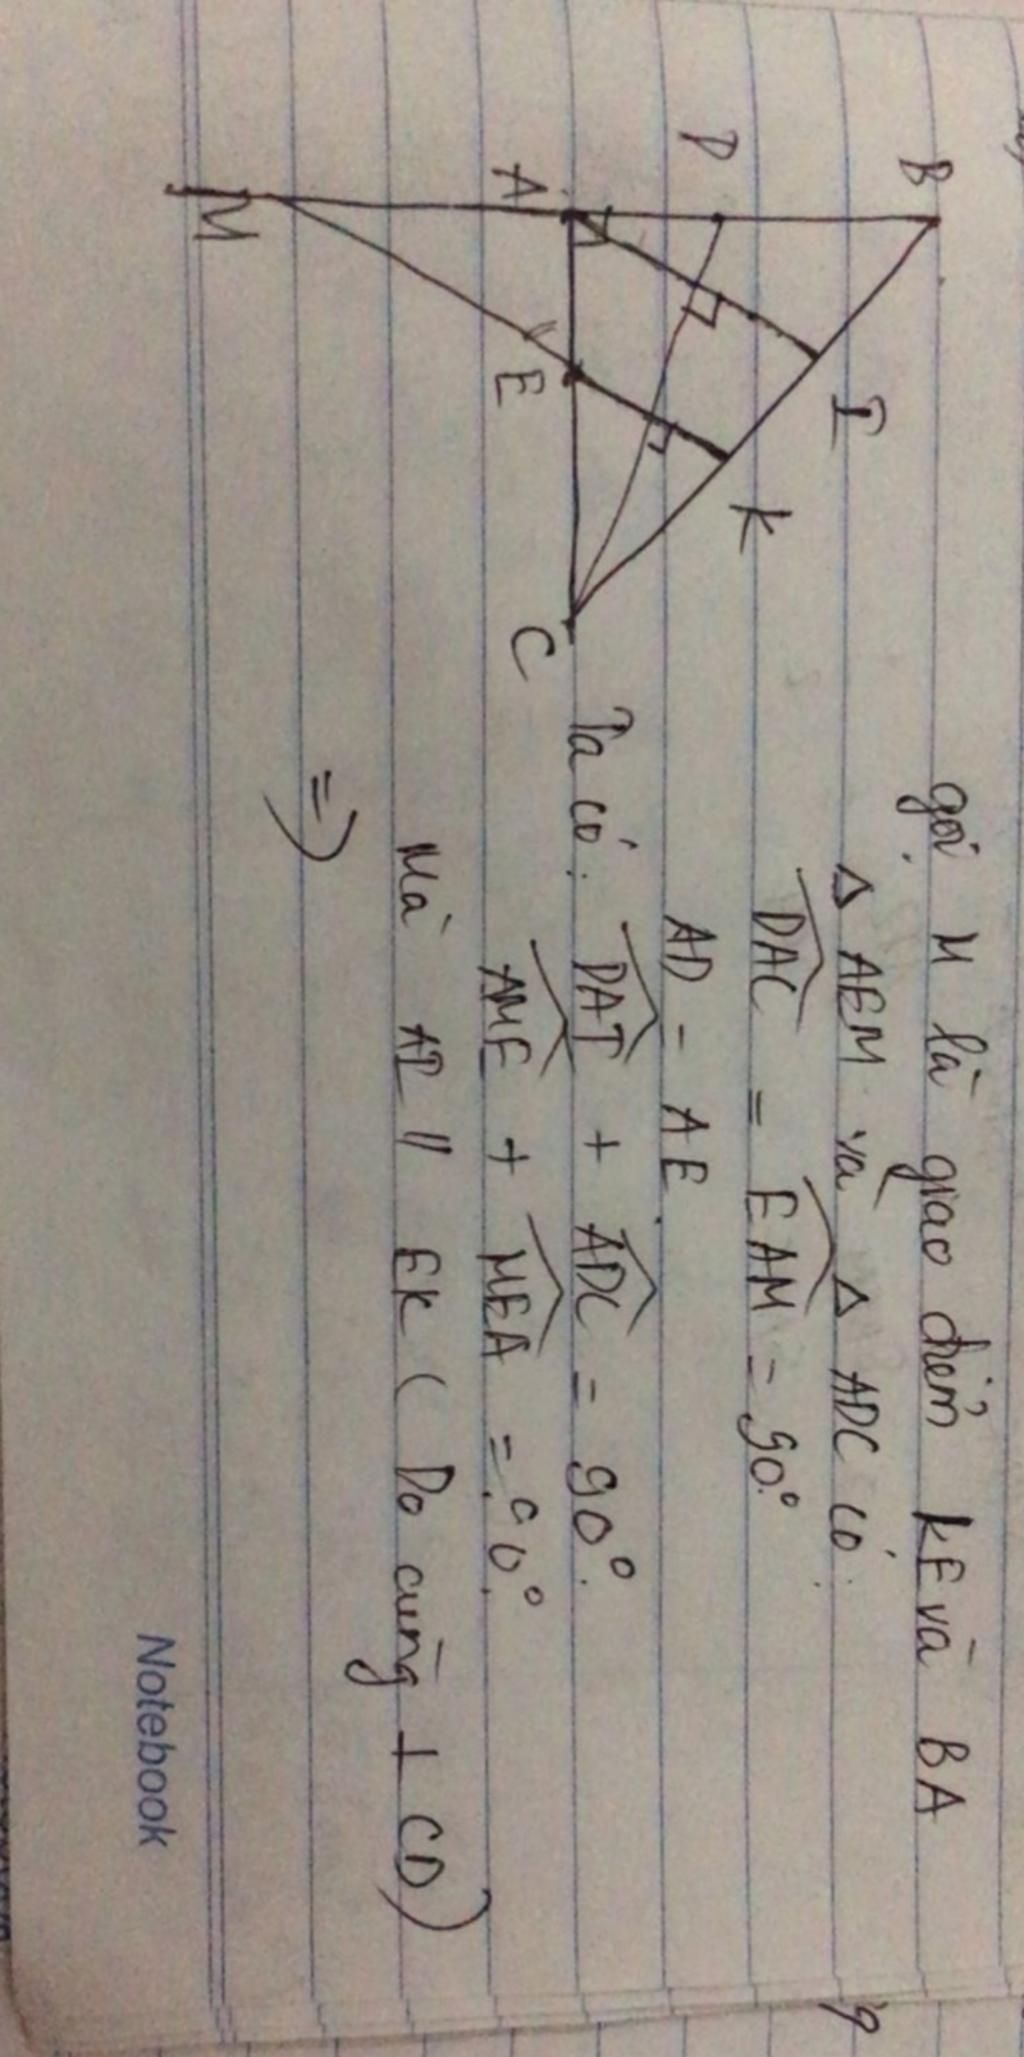 B
D
I
A
K
E
M
C
gọi M là giao điểm KE và BA
Δ AEM và Δ ADC có:
DAC = EAM = 90°
AD = AE
Ta có: DAI + ADC = 90°.
AME + MEA = 90°.
Mà AI // EK ( Do cùng ⊥ CD)
=>
Notebook